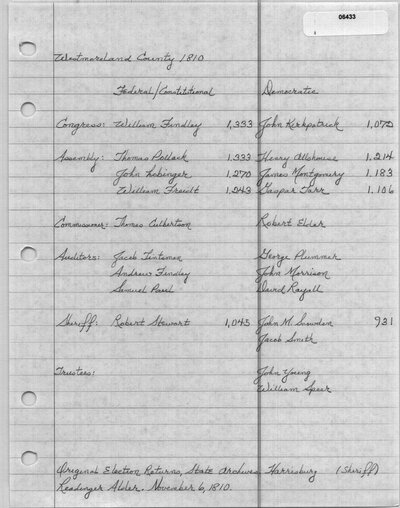 06433
Westmoreland County 1810
Federal/Constitutional Democratic
Congress: William Findley 1,333 John Kirkpatrick 1,072
Assembly: Thomas Pollack 1,333 Henry Allshouse 1,214
John Lobinger 1,270 James Montgomery 1,183
William Friedt 1,243 Gaspar Tarr 1,106
Commissioner: Thomas Culbertson Robert Elder
Auditors: Jacob Tintsman George Plummer
Andrew Findley John Morrison
Samuel Paul David Rayall
Sheriff: Robert Stewart 1,045 John M. Snowden 931
Jacob Smith
Trustees: John Young
William Speer
Original Election Returns, State Archives, Harrisburg (Sheriff)
Readinger Adler. November 6, 1810.